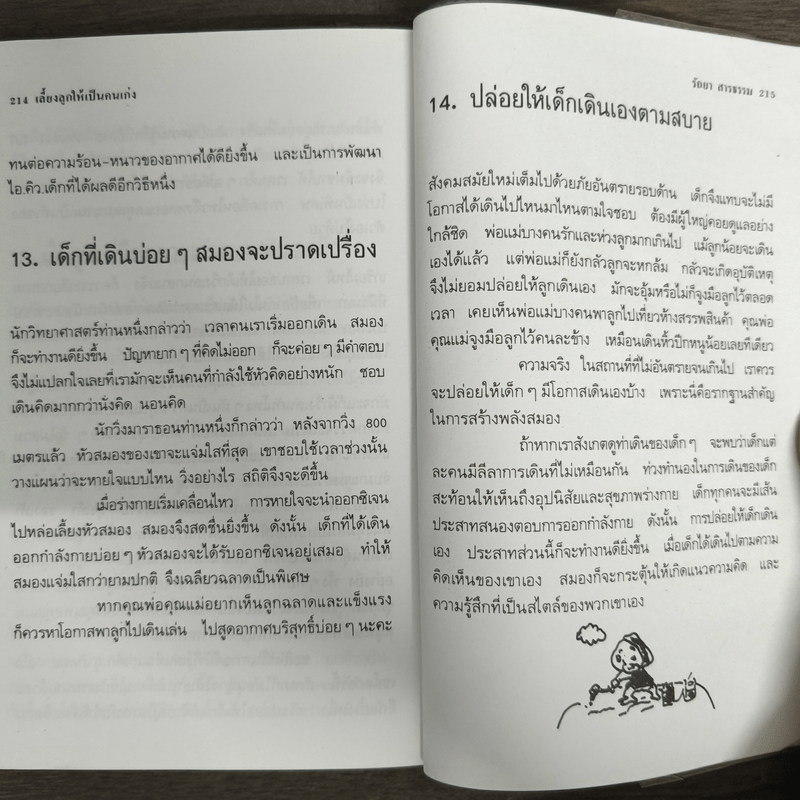 214 เลี้ยงลูกให้เป็นคนเก่ง
ทนต่อความร้อน-หนาวของอากาศได้ดียิ่งขึ้น และเป็นการพัฒนา
ไอ.คิว.เด็กที่ได้ผลดีอีกวิธีหนึ่ง
13. เด็กที่เดินบ่อย ๆ สมองจะปราดเปรื่อง
นักวิทยาศาสตร์ท่านหนึ่งกล่าวว่า เวลาคนเราเริ่มออกเดิน สมอง
ก็จะทำงานดียิ่งขึ้น ปัญหายาก ๆ ที่คิดไม่ออก ก็จะค่อย ๆ มีคำตอบ
จึงไม่แปลกใจเลยที่เรามักจะเห็นคนที่กำลังใช้หัวคิดอย่างหนัก ชอบ
เดินคิดมากกว่านั่งคิด นอนคิด
นักวิ่งมาราธอนท่านหนึ่งก็กล่าวว่า หลังจากวิ่ง 800
เมตรแล้ว หัวสมองของเขาจะแจ่มใสที่สุด เขาชอบใช้เวลาช่วงนั้น
วางแผนว่าจะหายใจแบบไหน วิ่งอย่างไร สถิติจึงจะดีขึ้น
เมื่อร่างกายเริ่มเคลื่อนไหว การหายใจจะนำออกซิเจน
ไปหล่อเลี้ยงหัวสมอง สมองจึงสดชื่นยิ่งขึ้น ดังนั้น เด็กที่ได้เดิน
ออกกำลังกายบ่อย ๆ หัวสมองจะได้รับออกซิเจนอยู่เสมอ ทำให้
สมองแจ่มใสกว่ายามปกติ จึงเฉลียวฉลาดเป็นพิเศษ
หากคุณพ่อคุณแม่อยากเห็นลูกฉลาดและแข็งแรง
ก็ควรหาโอกาสพาลูกไปเดินเล่น ไปสูดอากาศบริสุทธิ์บ่อย ๆ นะคะ
รัถยา สารธรรม 215
14. ปล่อยให้เด็กเดินเองตามสบาย
สังคมสมัยใหม่เต็มไปด้วยภัยอันตรายรอบด้าน เด็กจึงแทบจะไม่มี
โอกาสได้เดินไปไหนมาไหนตามใจชอบ ต้องมีผู้ใหญ่คอยดูแลอย่าง
ใกล้ชิด พ่อแม่บางคนรักและห่วงลูกมากเกินไป แม้ลูกน้อยจะเดิน
เองได้แล้ว แต่พ่อแม่ก็ยังกลัวลูกจะหกล้ม กลัวจะเกิดอุบัติเหตุ
จึงไม่ยอมปล่อยให้ลูกเดินเอง มักจะอุ้มหรือไม่ก็จูงมือลูกไว้ตลอด
เวลา เคยเห็นพ่อแม่บางคนพาลูกไปเที่ยวห้างสรรพสินค้า คุณพ่อ
คุณแม่จูงมือลูกไว้คนละข้าง เหมือนเดินหิ้วปีกหนูน้อยเลยทีเดียว
ความจริง ในสถานที่ที่ไม่อันตรายจนเกินไป เราควร
จะปล่อยให้เด็ก ๆ มีโอกาสเดินเองบ้าง เพราะนี่คือรากฐานสำคัญ
ในการสร้างพลังสมอง
ถ้าหากเราสังเกตดูท่าเดินของเด็ก ๆ จะพบว่าเด็กแต่
ละคนมีลีลาการเดินที่ไม่เหมือนกัน ท่วงทำนองในการเดินของเด็ก
สะท้อนให้เห็นถึงอุปนิสัยและสุขภาพร่างกาย เด็กทุกคนจะมีเส้น
ประสาทสนองตอบการออกกำลังกาย ดังนั้น การปล่อยให้เด็กเดิน
เอง ประสาทส่วนนี้ก็จะทำงานดียิ่งขึ้น เมื่อเด็กได้เดินไปตามความ
คิดเห็นของเขาเอง สมองก็จะกระตุ้นให้เกิดแนวความคิด และ
ความรู้สึกที่เป็นสไตล์ของพวกเขาเอง